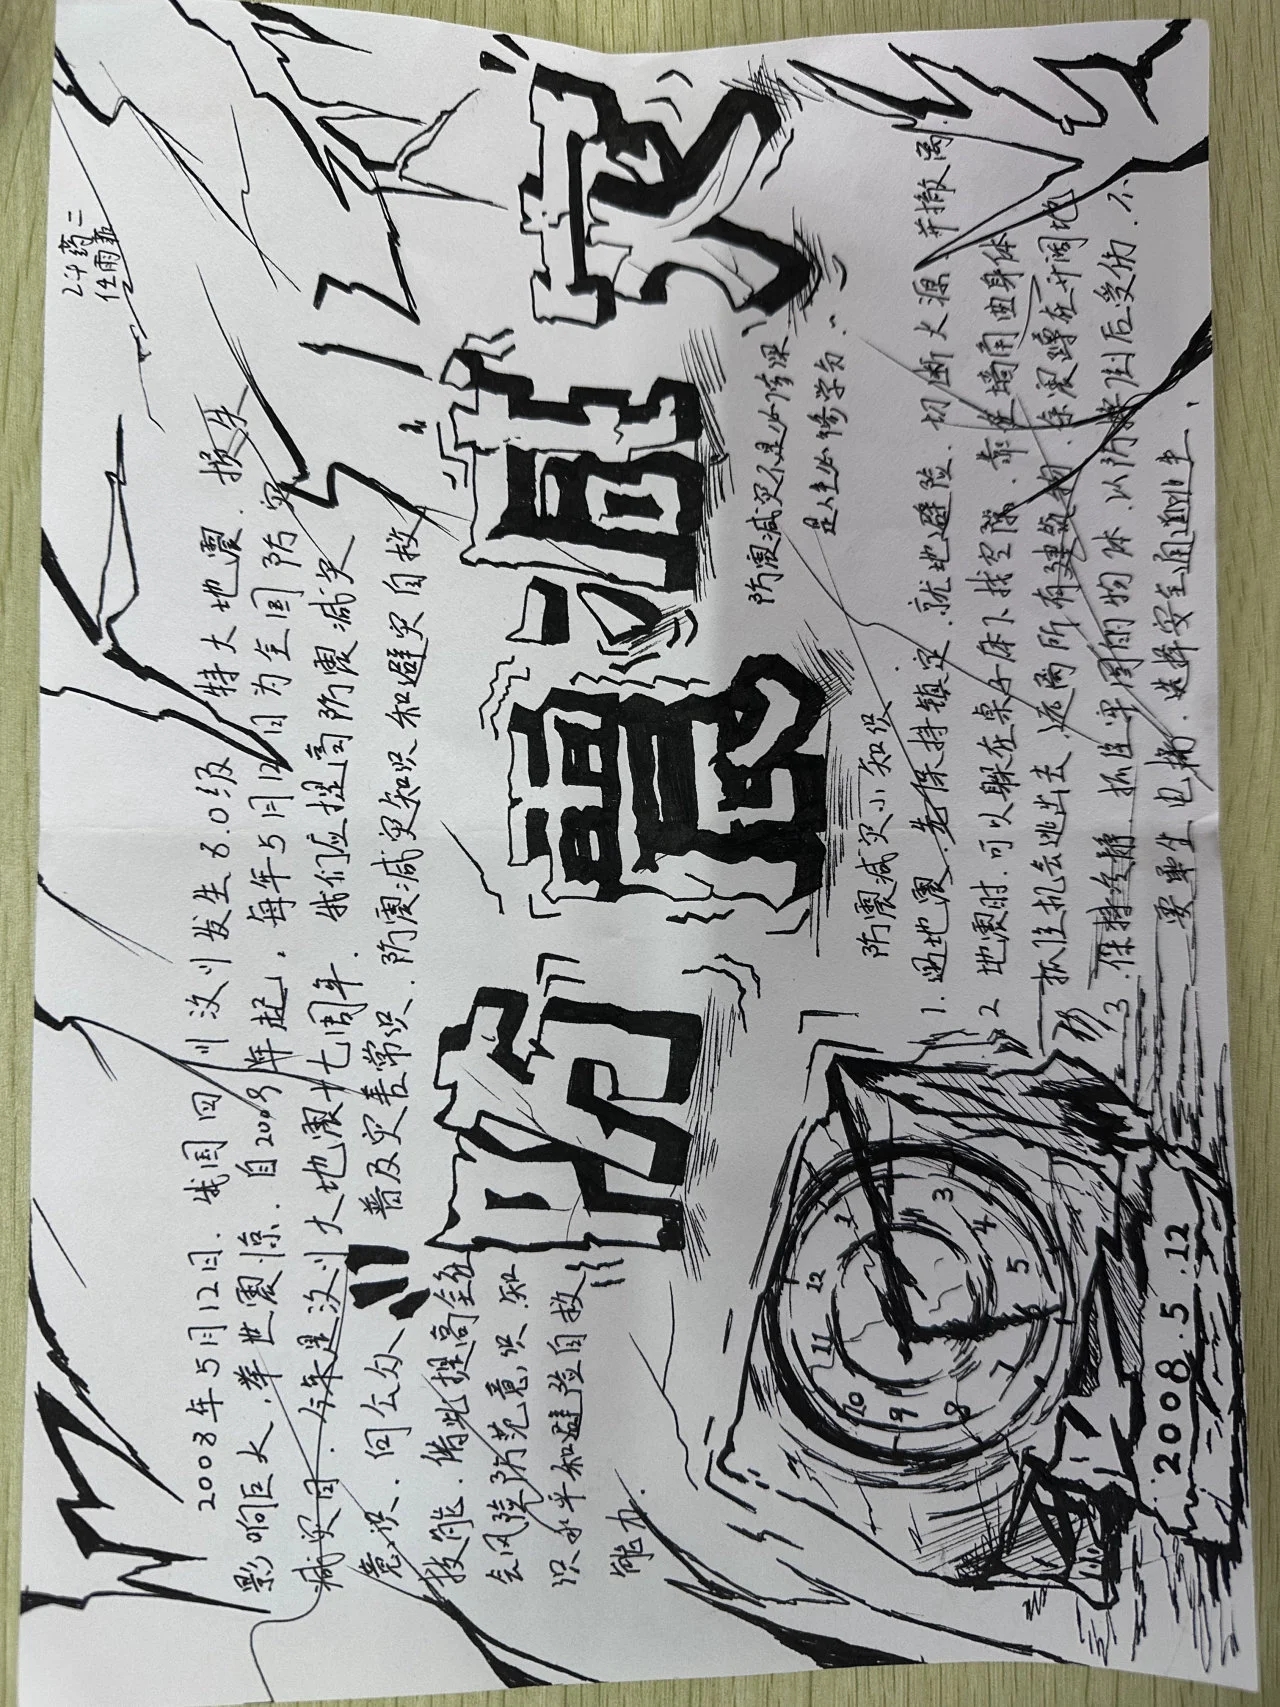 24药二
任雨
2008年5月12日.我国四川汶川发生8.0级特大地震.损失
影响巨大.举世震惊.自2009年起.每年5月12日为全国防灾
减灾日.今年是汶川大地震十七周年.我们应提高防震减灾
意识.向公众普及灾害常识.防震减灾知识和避灾自救
技能.借此提高全社
会风险防范意识.知
识水平和避险自救
能力.
防震减灾
防震减灾不是必修课
是人生必修学分.
防震减灾小知识
1.遇地震.先保持镇定.就地避险.切断火源.并撤离.
2 地震时.可以躲在桌子床下找空隙.靠近墙角曲身体
抓住机会逃出去.远离所有建筑物.余震蹲在开阔地
3.保持冷静.抓住牢固的物体.以防摔倒后受伤.不
要乘坐电梯.选择安全通道
12
1
3
4
5
6
7
8
9
10
11
2008.5.12